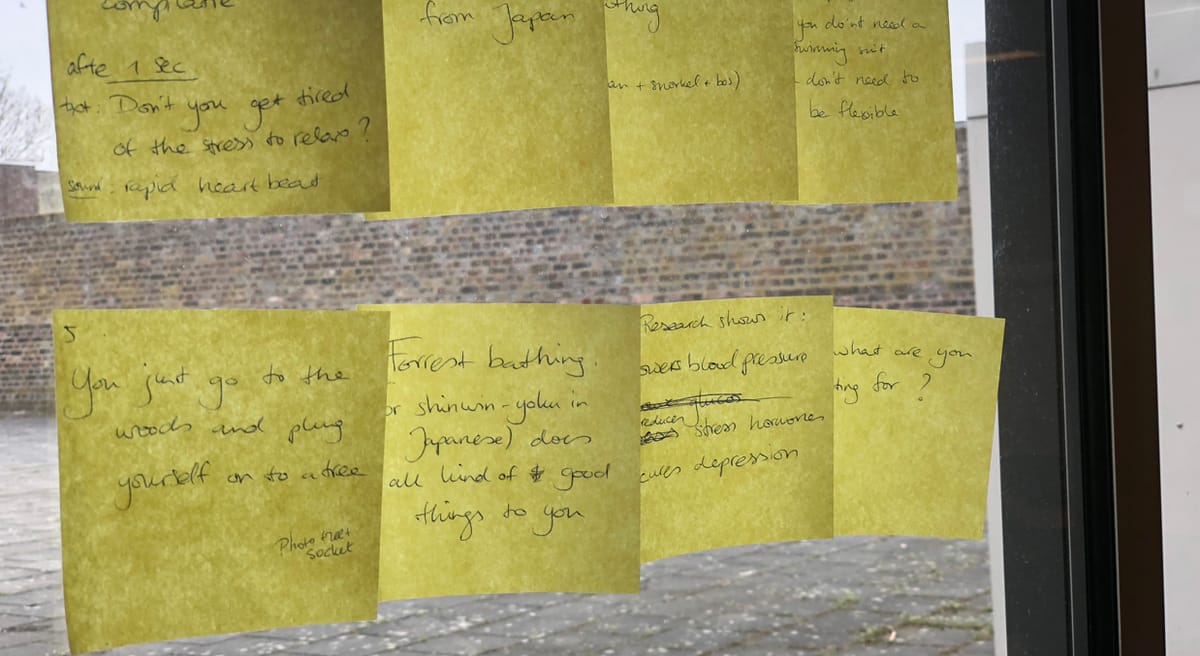 complicate
afte 1 sec
txt: Don't you get tired
of the stress to relax?
sound: rapid heart beat
from Japan
thing
an + snorkel + bos)
you do'nt need a
swimming suit
- don't need to
be flexible
5.
You just go to the
woods and plug
yourself on to a tree
Photo tree +
socket
Forrest bathing.
or shinwin-yoku in
Japanese) does
all kind of good
things to you
Research shows it:
owers blood pressure
glucos
reduces stress hormones
cures depression
what are you
ting for?